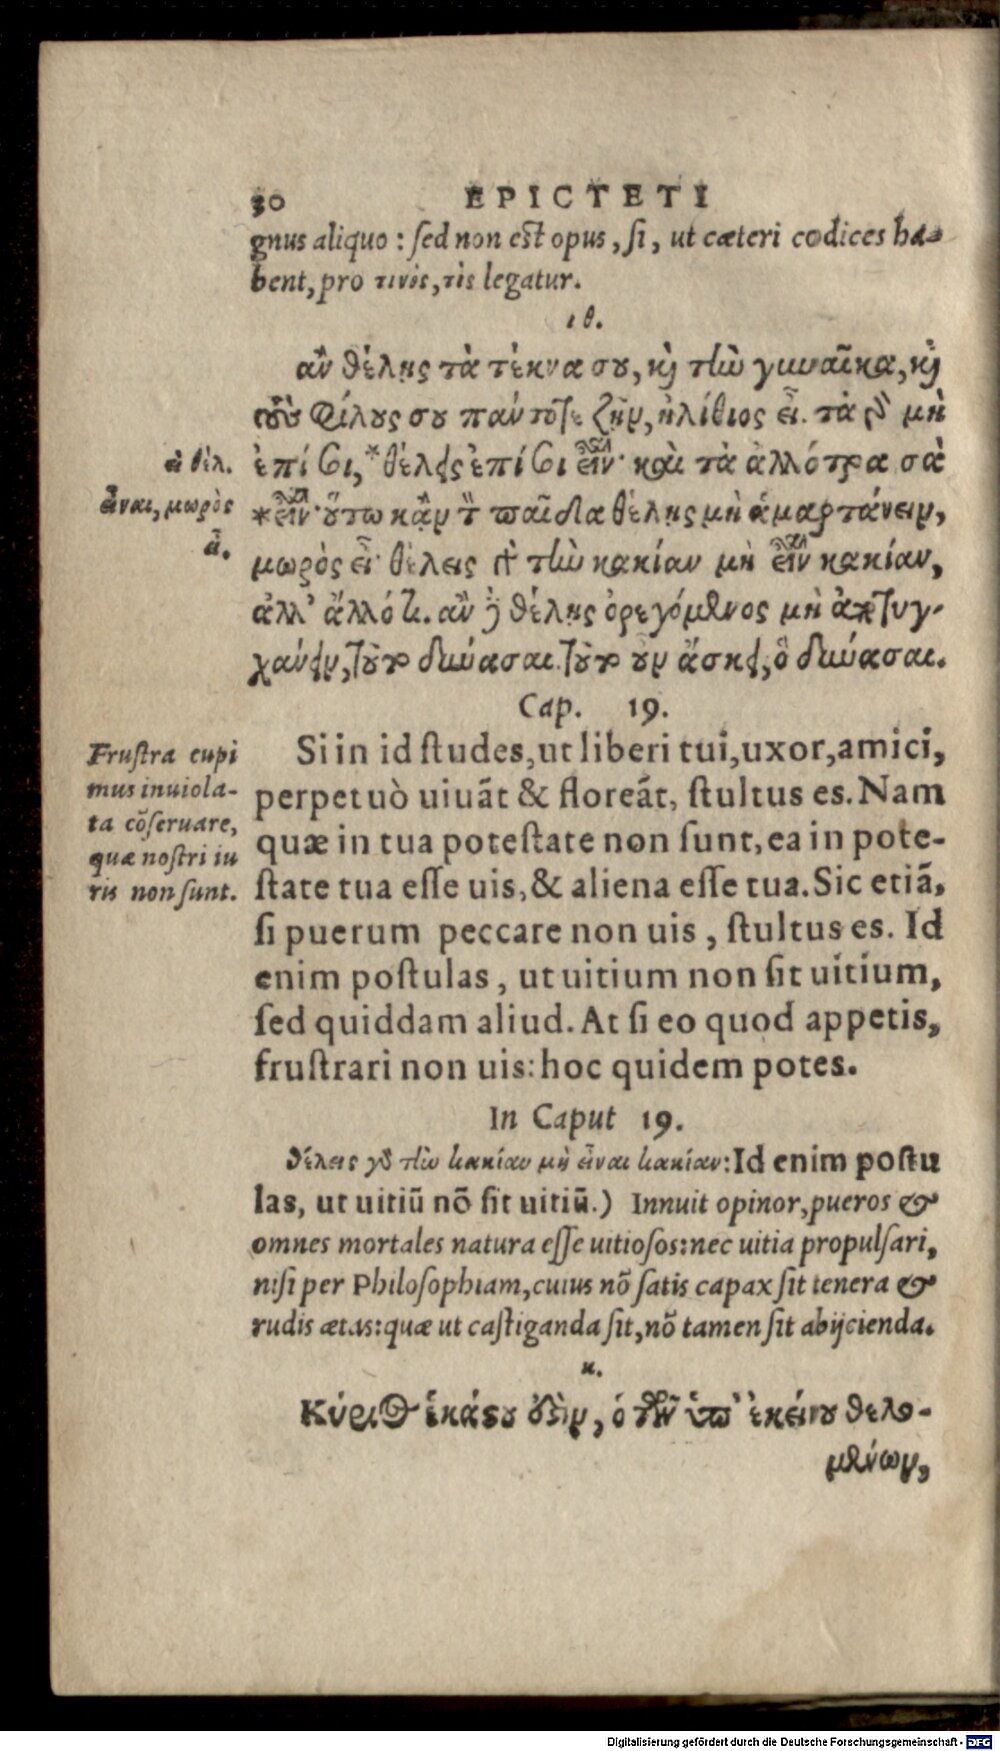 30 EPICTETI
gnus aliquo : ſed non eſt opus, ſi, ut cæteri codices ha-
bent, pro τινὸς, τὶς legatur.
ιθ.
ἂν θέλῃς τὰ τέκνα σου, καὶ τὴν γυναῖκα, καὶ
τοὺς φίλους σου πάντοτε ζῇν, ἠλίθιος εἶ. τὰ γὰρ μὴ
ἐπί σοι, *θέλεις ἐπί σοι εἶναι· καὶ τὰ ἀλλότρια σὰ
*εἶναι· οὕτω κἂν τὸν παῖδα θέλῃς μὴ ἁμαρτάνειν,
μωρὸς εἶ· θέλεις γὰρ τὴν κακίαν μὴ εἶναι κακίαν,
ἀλλ' ἄλλό τι. ἂν δὲ θέλῃς ὀρεγόμενος μὴ ἀποτυγ-
χάνειν, τοῦτο δύνασαι. τοῦτο οὖν ἄσκει, ὃ δύνασαι.
εἰ θέλ.
εἶναι, μωρὸς
εἶ.
Cap. 19.
Si in id ſtudes, ut liberi tui, uxor, amici,
perpetuò uiuāt & floreāt, ſtultus es. Nam
quæ in tua poteſtate non ſunt, ea in pote-
ſtate tua eſſe uis, & aliena eſſe tua. Sic etiā,
ſi puerum peccare non uis, ſtultus es. Id
enim poſtulas, ut uitium non ſit uitium,
ſed quiddam aliud. At ſi eo quod appetis,
fruſtrari non uis: hoc quidem potes.
Fruſtra cupi
mus inuiola-
ta cōſeruare,
quæ noſtri iu
ris non ſunt.
In Caput 19.
θέλεις γὰρ τὴν κακίαν μὴ εἶναι κακίαν: Id enim poſtu
las, ut uitiū nō ſit uitiū.) Innuit opinor, pueros &
omnes mortales natura eſſe uitioſos: nec uitia propulſari,
niſi per Philoſophiam, cuius nō ſatis capax ſit tenera &
rudis ætas: quæ ut caſtiganda ſit, nō tamen ſit abijcienda.
κ.
Κύριος ἑκάστου ἐστὶν, ὁ τῶν ὑπ' ἐκείνου θελο-
μένων,
Digitalisierung gefördert durch die Deutsche Forschungsgemeinschaft - DFG